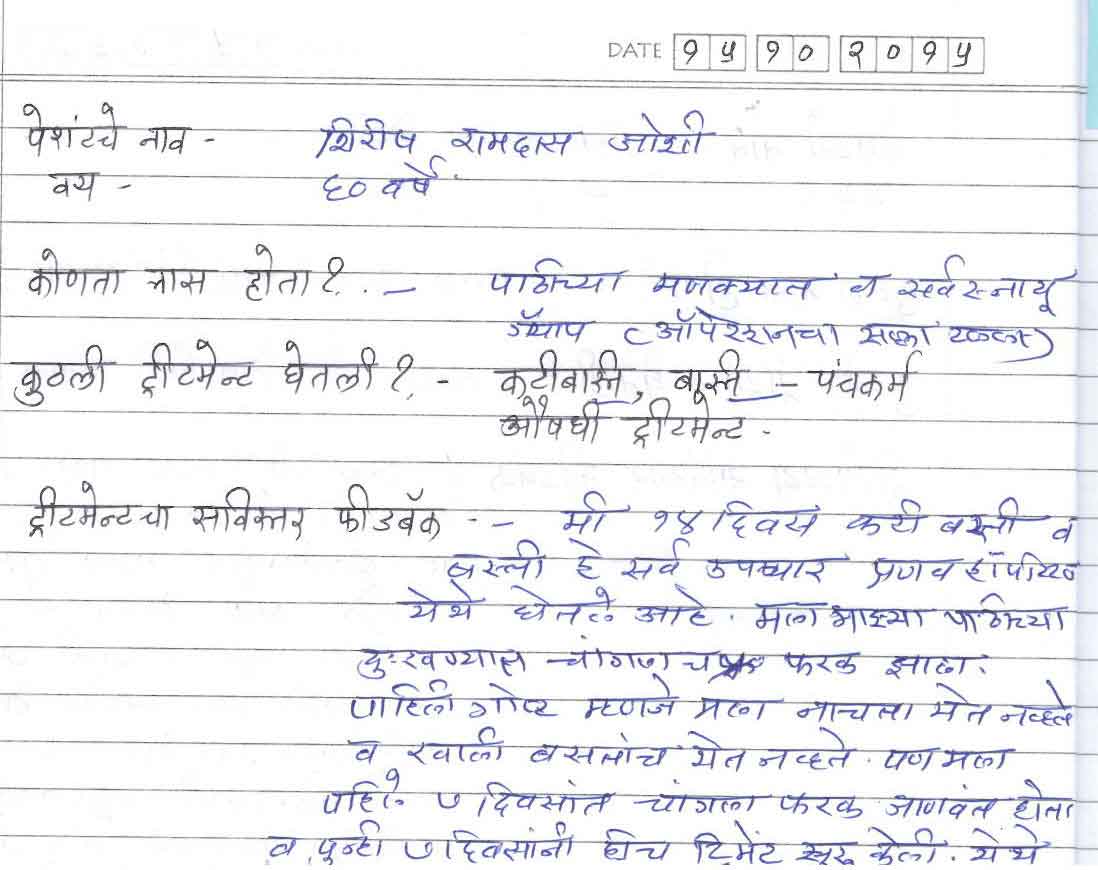 DATE १५ १० २०१५
पेशंटचे नाव - शिरीष रामदास जोशी
वय - ६० वर्षे.
कोणता त्रास होता? - पाठीच्या मणक्यात व सर्व स्नायू
गॅप (ऑपरेशनचा सल्ला टळला)
कुठली ट्रीटमेन्ट घेतली? - कटीबस्ती, बस्ती - पंचकर्म
औषधी ट्रीटमेन्ट.
ट्रीटमेन्टचा सविस्तर फीडबॅक - - मी १४ दिवस कटी बस्ती व
बस्ती हे सर्व उपचार प्रणव हॉस्पिटल
येथे घेतले आहे. मला माझ्या पाठीच्या
दुःखण्यात चांगलाच फरक झाला.
पाहिली गोष्ट म्हणजे मला नाचता येत नव्हते
व खाली बसतांच येत नव्हते. पण मला
पहिले ७ दिवसांत चांगला फरक जाणवत होता
व पुन्हा ७ दिवसांनी हीच ट्रिमेंट सूरू केली. येथे